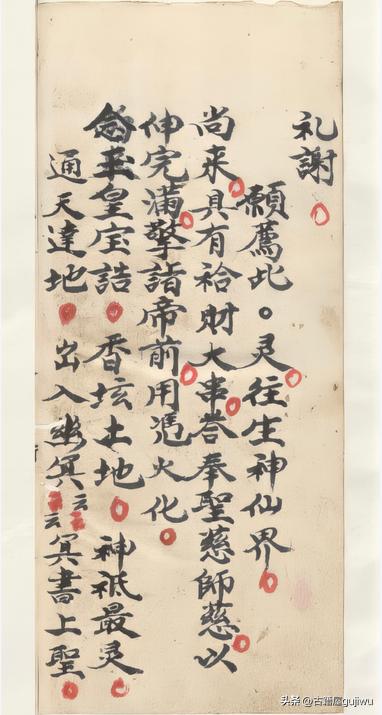 礼謝
願薦此。灵往生神仙界
尚来具有袷財大串荅奉聖慈師慈以
伸完滿擎詣帝前用憑火化
念玉皇宝誥香坛土地神祇最灵
通天達地出入幽冥云云冥書上聖
头条@古籍屋gujiwu